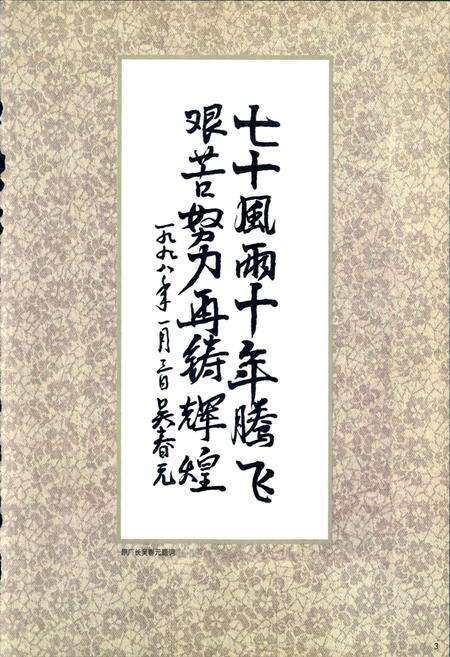 七十風雨十年腾飞
艰苦努力再铸辉煌
一九九八年一月三日吴春元
原厂长吴春元题词
3